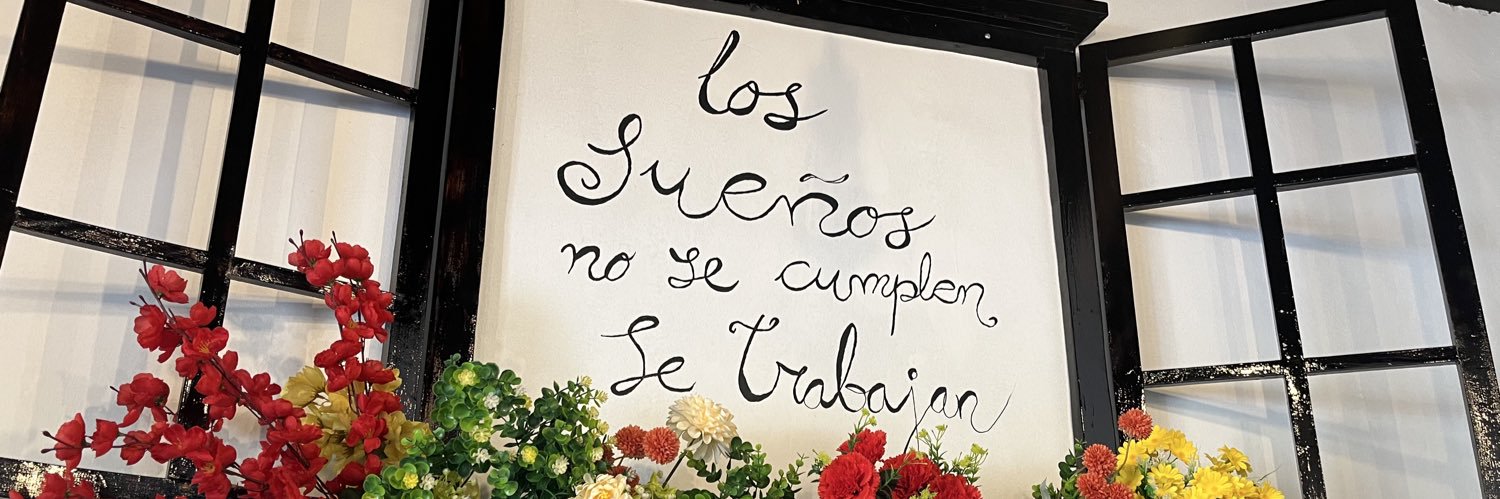 los
Sueños
no se cumplen
Se Trabajan